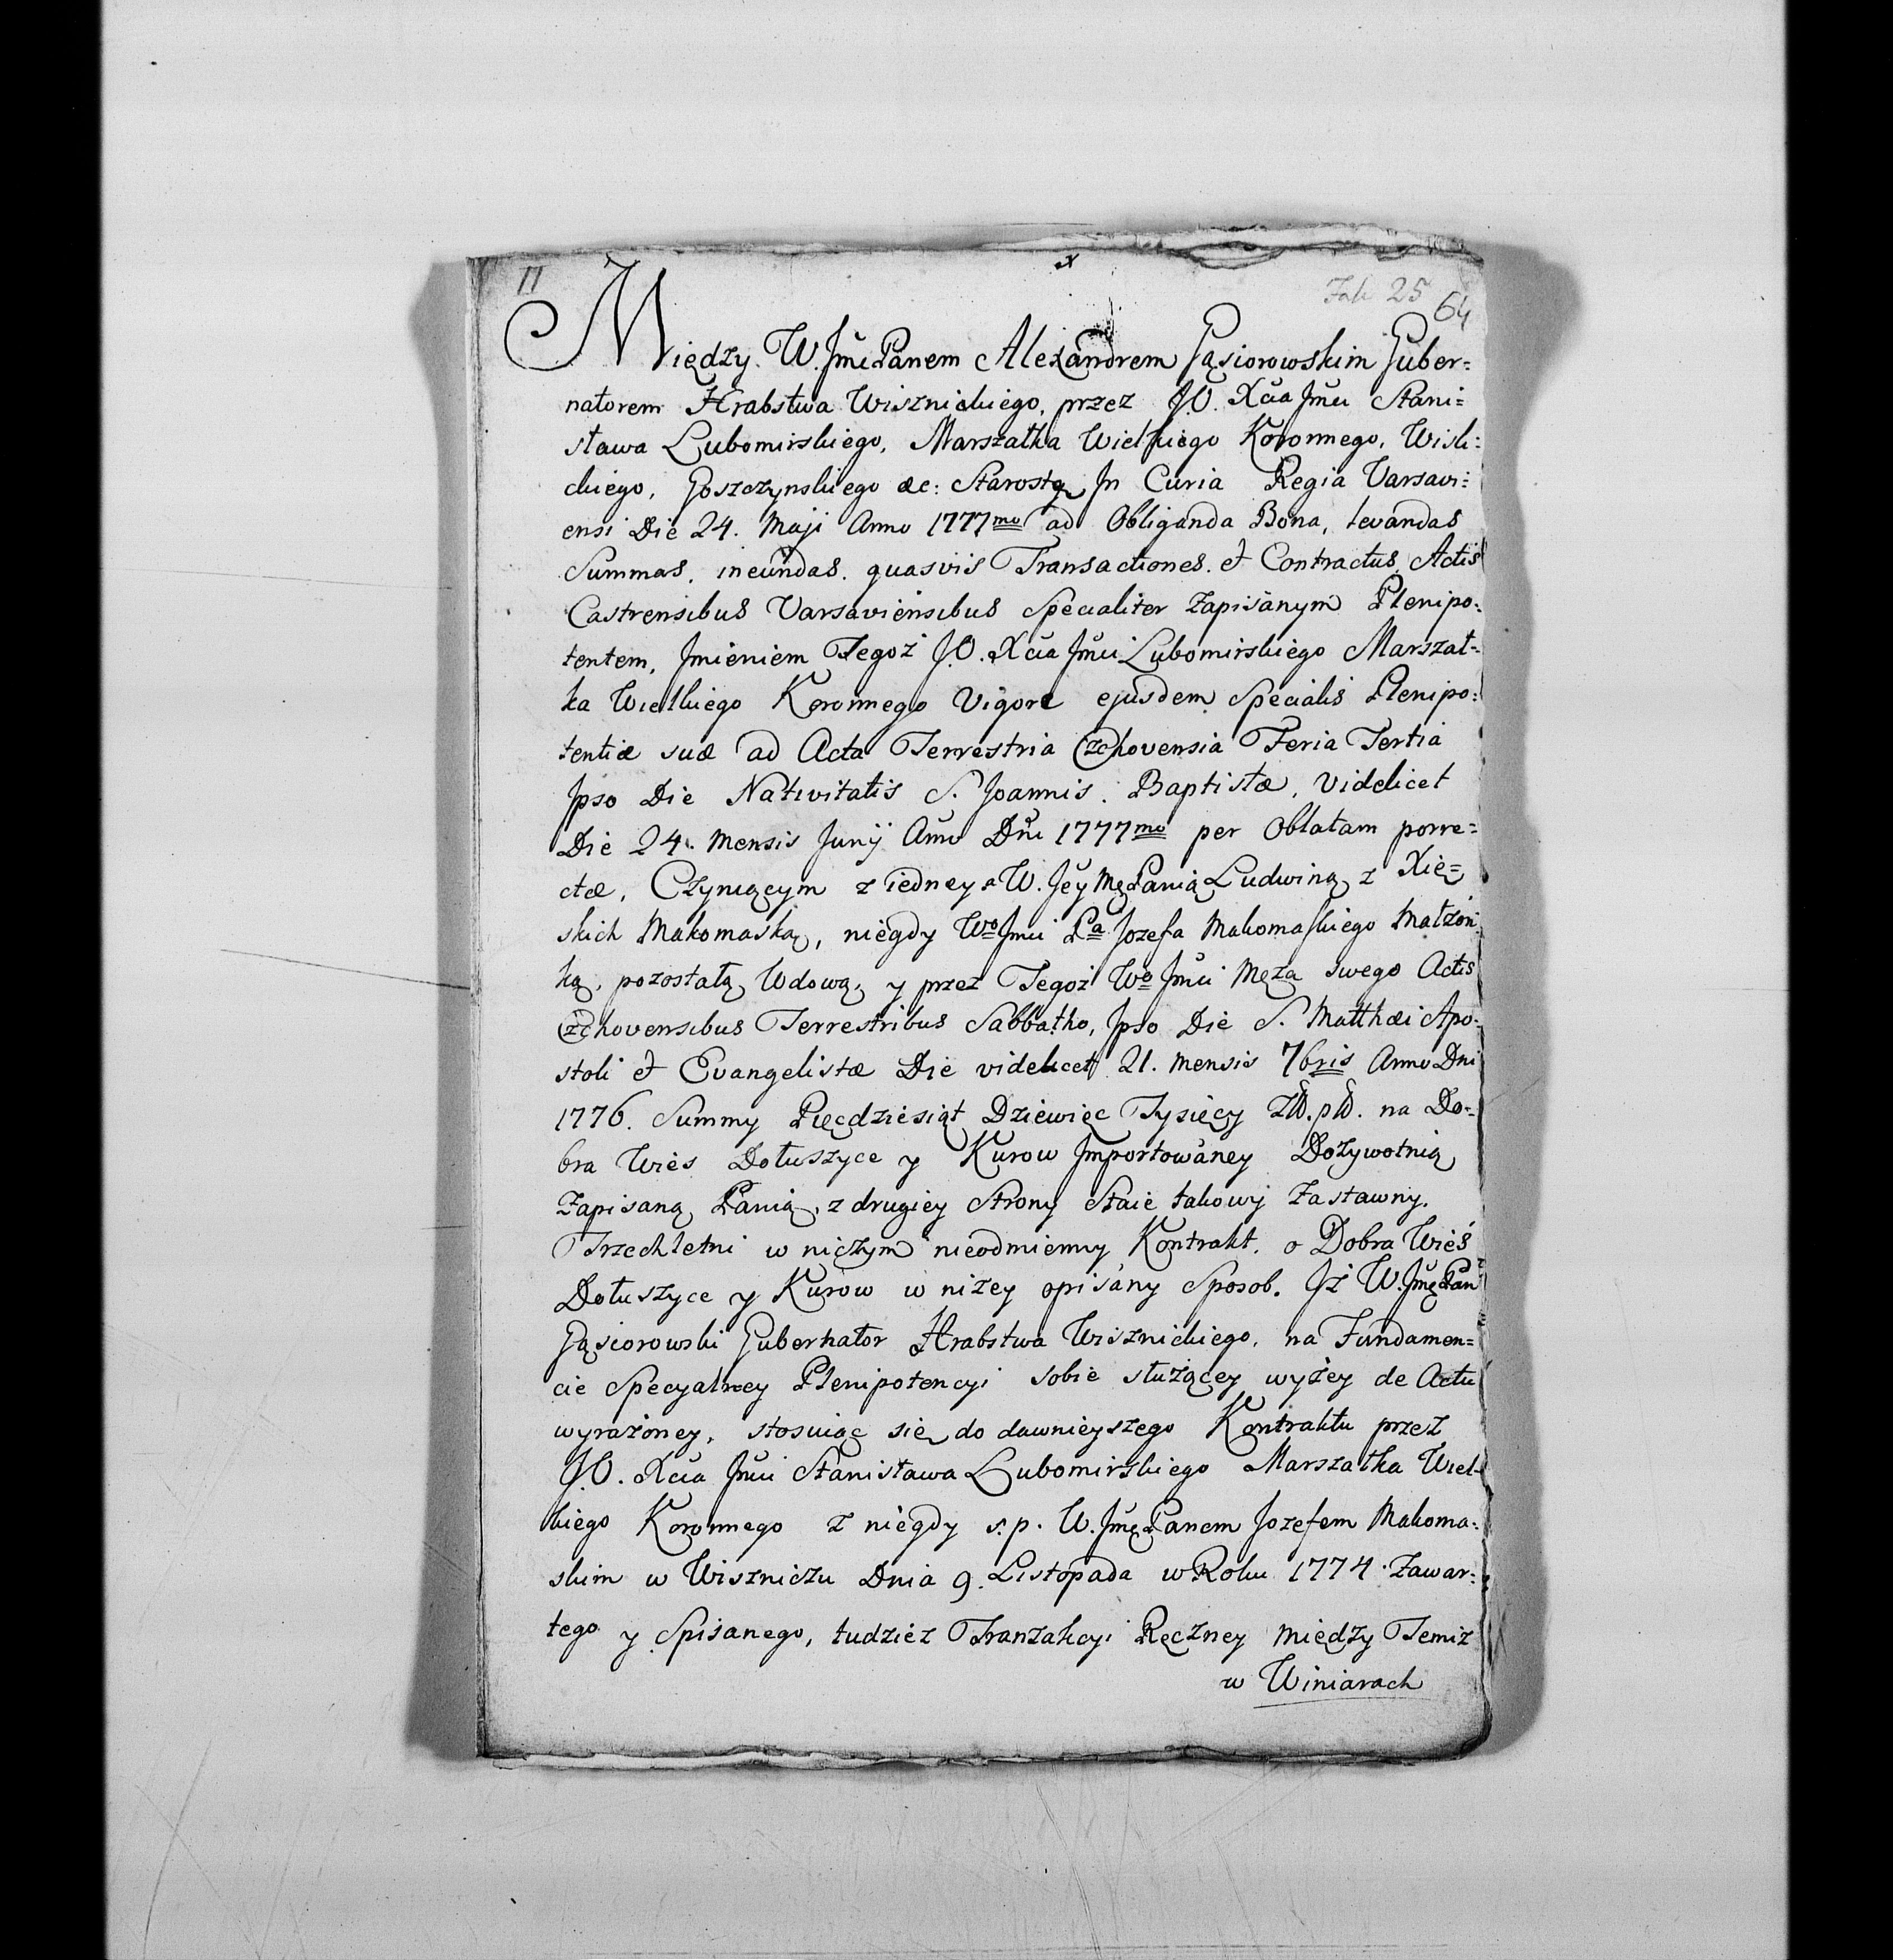 11
x
Fah 25
64
Między W. Jmć Panem Alexandrem Gąsiorowskim Guber=
natorem Hrabstwa Wisznickiego, przez J.O. Xcia Jmci Stani=
sława Lubomirskiego, Marszałka Wielkiego Koronnego, Wiśli=
ckiego, Goszczynskiego &c: Starostę In Curia Regia Varsavi=
ensi Die 24. Maji Anno 1777mo ad Obliganda Bona, levandas
Summas, ineundas quasvis Transactiones et Contractus, Actis
Castrensibus Varsaviensibus Specialiter Zapisanym Plenipo=
tentem, Jmieniem Tegoż J.O. Xcia Jmci Lubomirskiego Marszał=
ka Wielkiego Koronnego Vigore ejusdem Specialis Plenipo=
tentiæ suæ ad Acta Terrestria Czchovensia Feria Tertia
Ipso Die Nativitatis S. Joannis Baptistæ, Videlicet
Die 24. Mensis Junij Anno Dni 1777mo per Oblatam porre=
ctæ, Czyniącym z iedney a W. Jey Mę Panią Ludwiną z Xię=
skich Makomaską, niegdy Wo Jmci Pa Jozefa Makomaskiego Małżon=
ką, pozostałą Wdową, y przez Tegoż Wo Jmci Męża swego Actis
Czchovensibus Terrestribus Sabbatho, Ipso Die S. Matthæi Apo=
stoli et Evangelistæ Die videlicet 21. Mensis 7bris Anno Dni
1776. Summy Pięcdziesiąt Dziewięc Tysięcy Zł. pl. na Do=
bra Wieś Dołuszyce y Kurow Importowaney Dożywotnią
Zapisaną Panią, z drugiey Strony Staie takowy Zastawny,
Trzechletni w niczym nieodmienny Kontrakt, o Dobra Wieś
Dołuszyce y Kurow w niżey opisany Sposob. Iż W. Jmć Pan
Gąsiorowski Gubernator Hrabstwa Wisznickiego, na Fundamen=
cie Specyalney Plenipotencyi sobie służącey wyżey de Actu
wyrażoney, stosuiąc się do dawnieyszego Kontraktu przez
J.O. Xcia Jmci Stanisława Lubomirskiego Marszałka Wiel=
kiego Koronnego z niegdy s. p. W. Jmć Panem Jozefem Makoma=
skim w Wiszniczu Dnia 9. Listopada w Roku 1774. Zawar=
tego y Spisanego, tudzież Tranzakcyi Ręczney między Temiż
w Winiarach